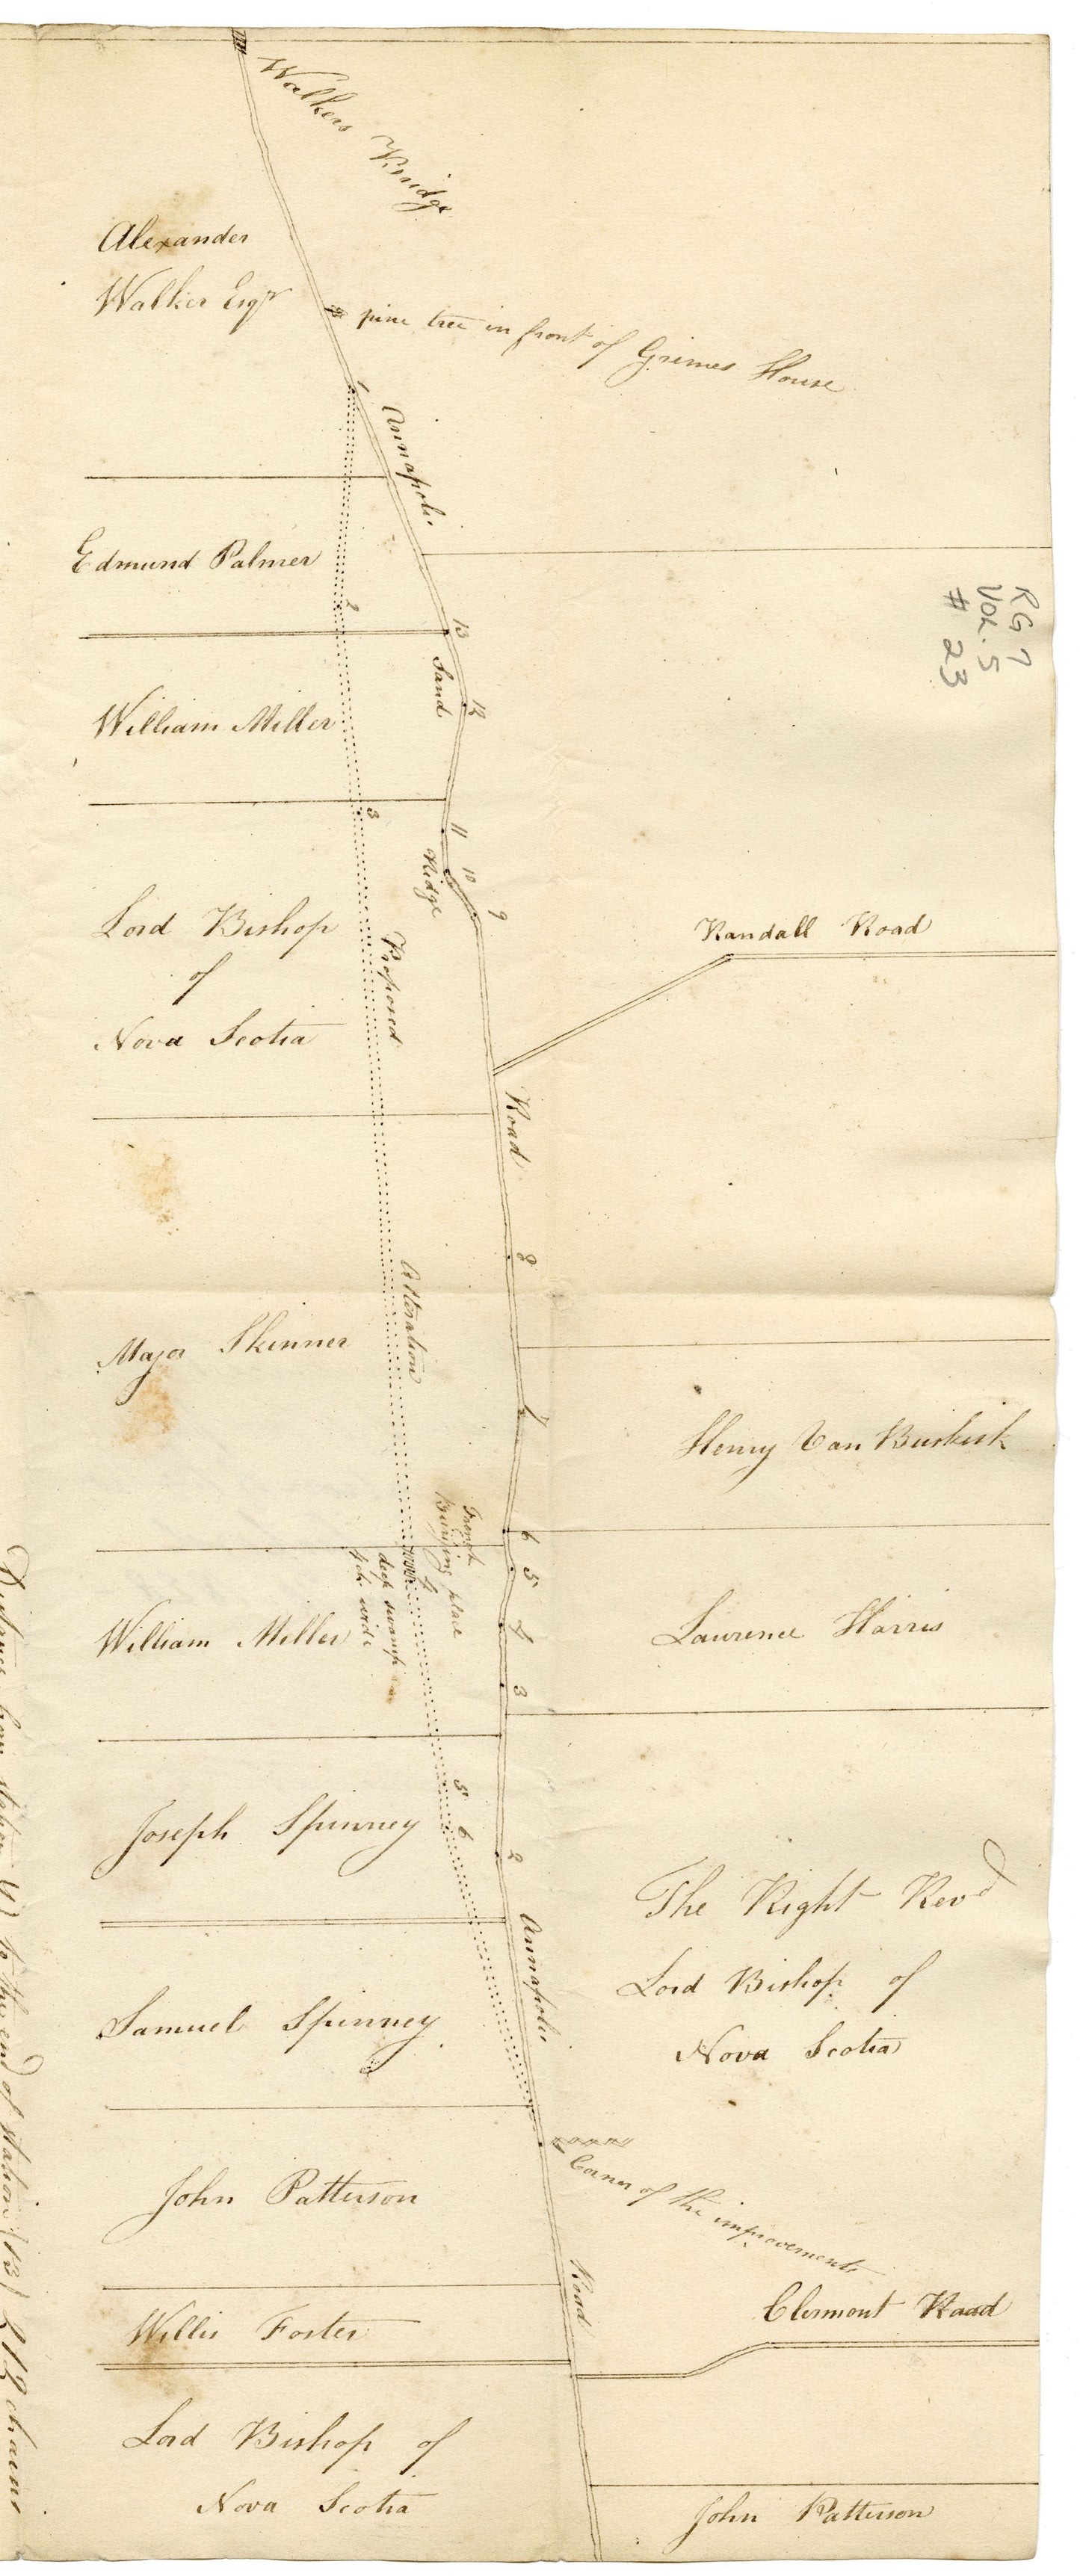 Walkers Bridge
Alexander
Walker Esqr
pine tree in front of Grimes House
1
Annapolis
RG 7
VOL. 5
# 23
Edmund Palmer
2
13
Sand
12
William Miller
3
11
Ridge
10
9
Lord Bishop
of
Nova Scotia
Proposed
Randall Road
Road
8
Alteration
Major Skinner
7
Henry Van Buskirk
French
Burying place
6
5
4
deep swamp
4 ch. wide
William Miller
4
Lawrence Harris
3
Joseph Spinney
5
6
2
The Right Revd
Lord Bishop of
Nova Scotia
Annapolis
Samuel Spinney
Corner of the improvements
John Patterson
Road
Clermont Road
Willis Foster
Lord Bishop of
Nova Scotia
John Patterson
Distance from station (4) to the end of station (13) 212 chains